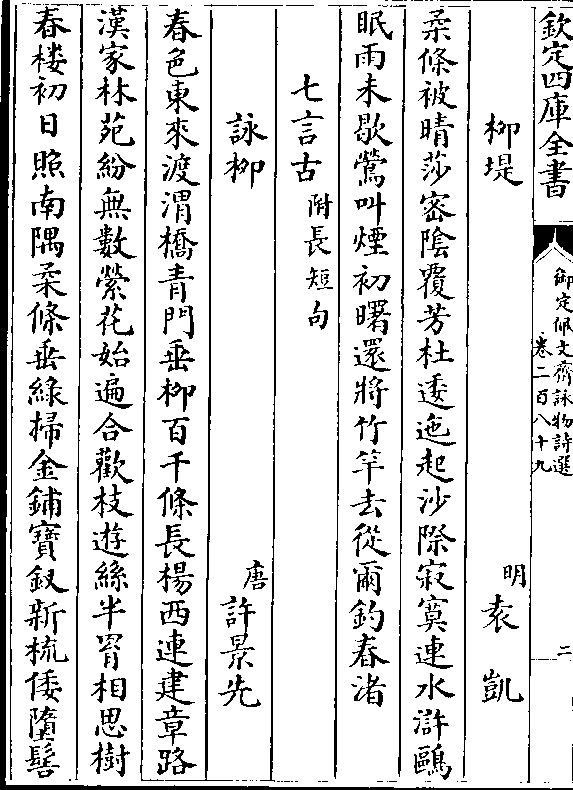 欽定四庫全書
御定佩文齋詠物詩選
卷二百八十九
二
柳堤
明
袁凱
柔條被晴莎密陰覆芳杜逶迤起沙際寂寞連水滸鷗
眠雨未歇鶯叫煙初曙還將竹竿去從爾釣春渚
七言古
附長短句
詠柳
唐
許景先
春色東來渡渭橋青門垂柳百千條長楊西連建章路
漢家林苑紛無數縈花始遍合歡枝遊絲半罥相思樹
春樓初日照南隅柔條垂綠掃金鋪寶釵新梳倭墮髻